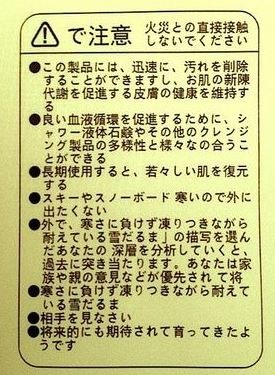 で注意 火災との直接接触
しないでください
●この製品には、迅速に、汚れを削除
することができますし、お肌の新陳
代謝を促進する皮膚の健康を維持す
る
●良い血液循環を促進するために、シ
ャワー液体石鹸やその他のクレンジ
ング製品の多様性と様々なの合うこ
とができる
●長期使用すると、若々しい肌を復元
する
●スキーやスノーボード 寒いので外に
出たくない
●外で、寒さに負けず凍りつきながら
耐えている雪だるま」の描写を選ん
だあなたの 深層を分析していくと、
過去に突き当たります。あなたは家
族や親の意見などが優先され て将
●寒さに負けず凍りつきながら耐えて
いる雪だるま
●相手を見なさい
●将来的にも期待されて育ってきたよ
うです